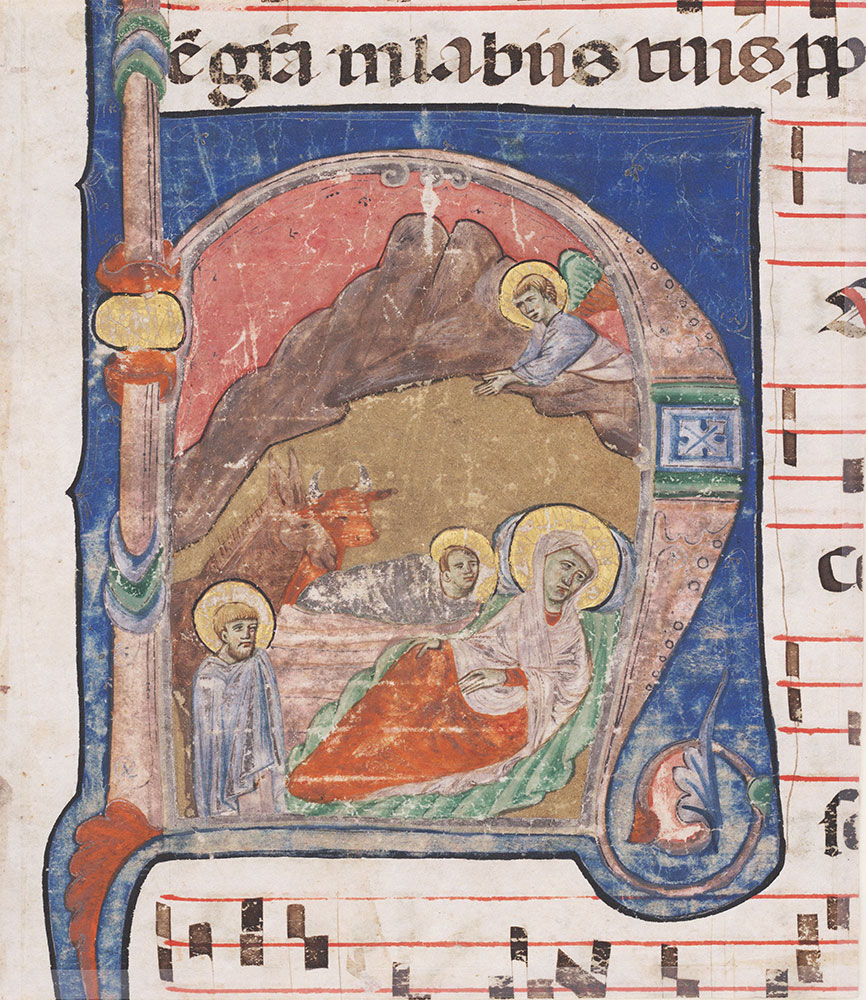 ē grā in labiis tuis. pp